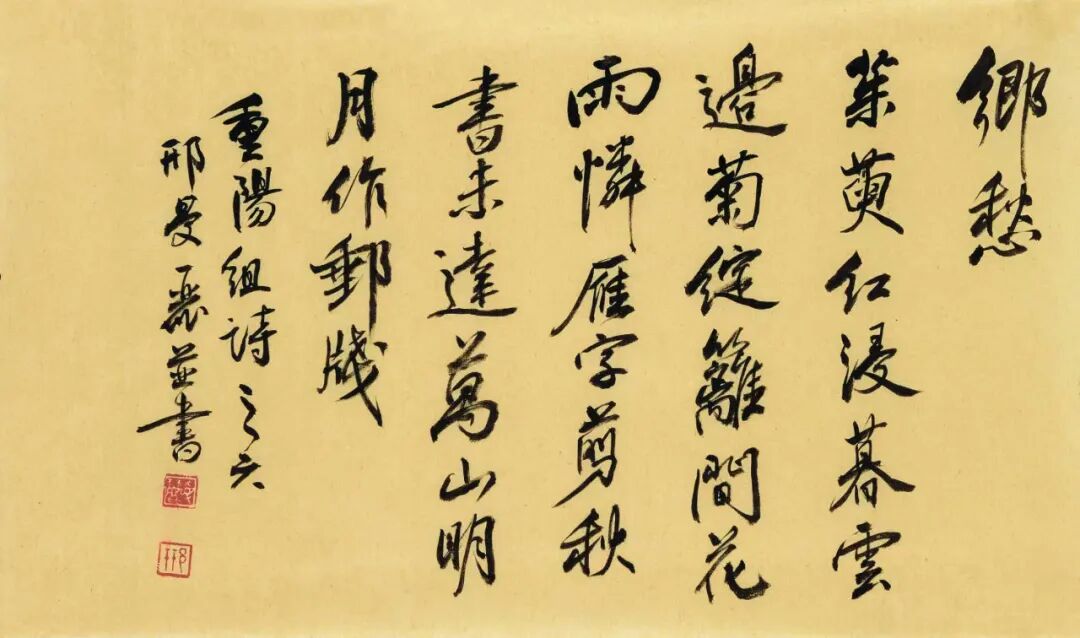 鄉愁
茱萸紅浸暮雲
邊菊綻籬間花
雨憐雁字剪秋
書未達萬山明
月作郵牋
重陽組詩之六
邢曼麗並書
邢